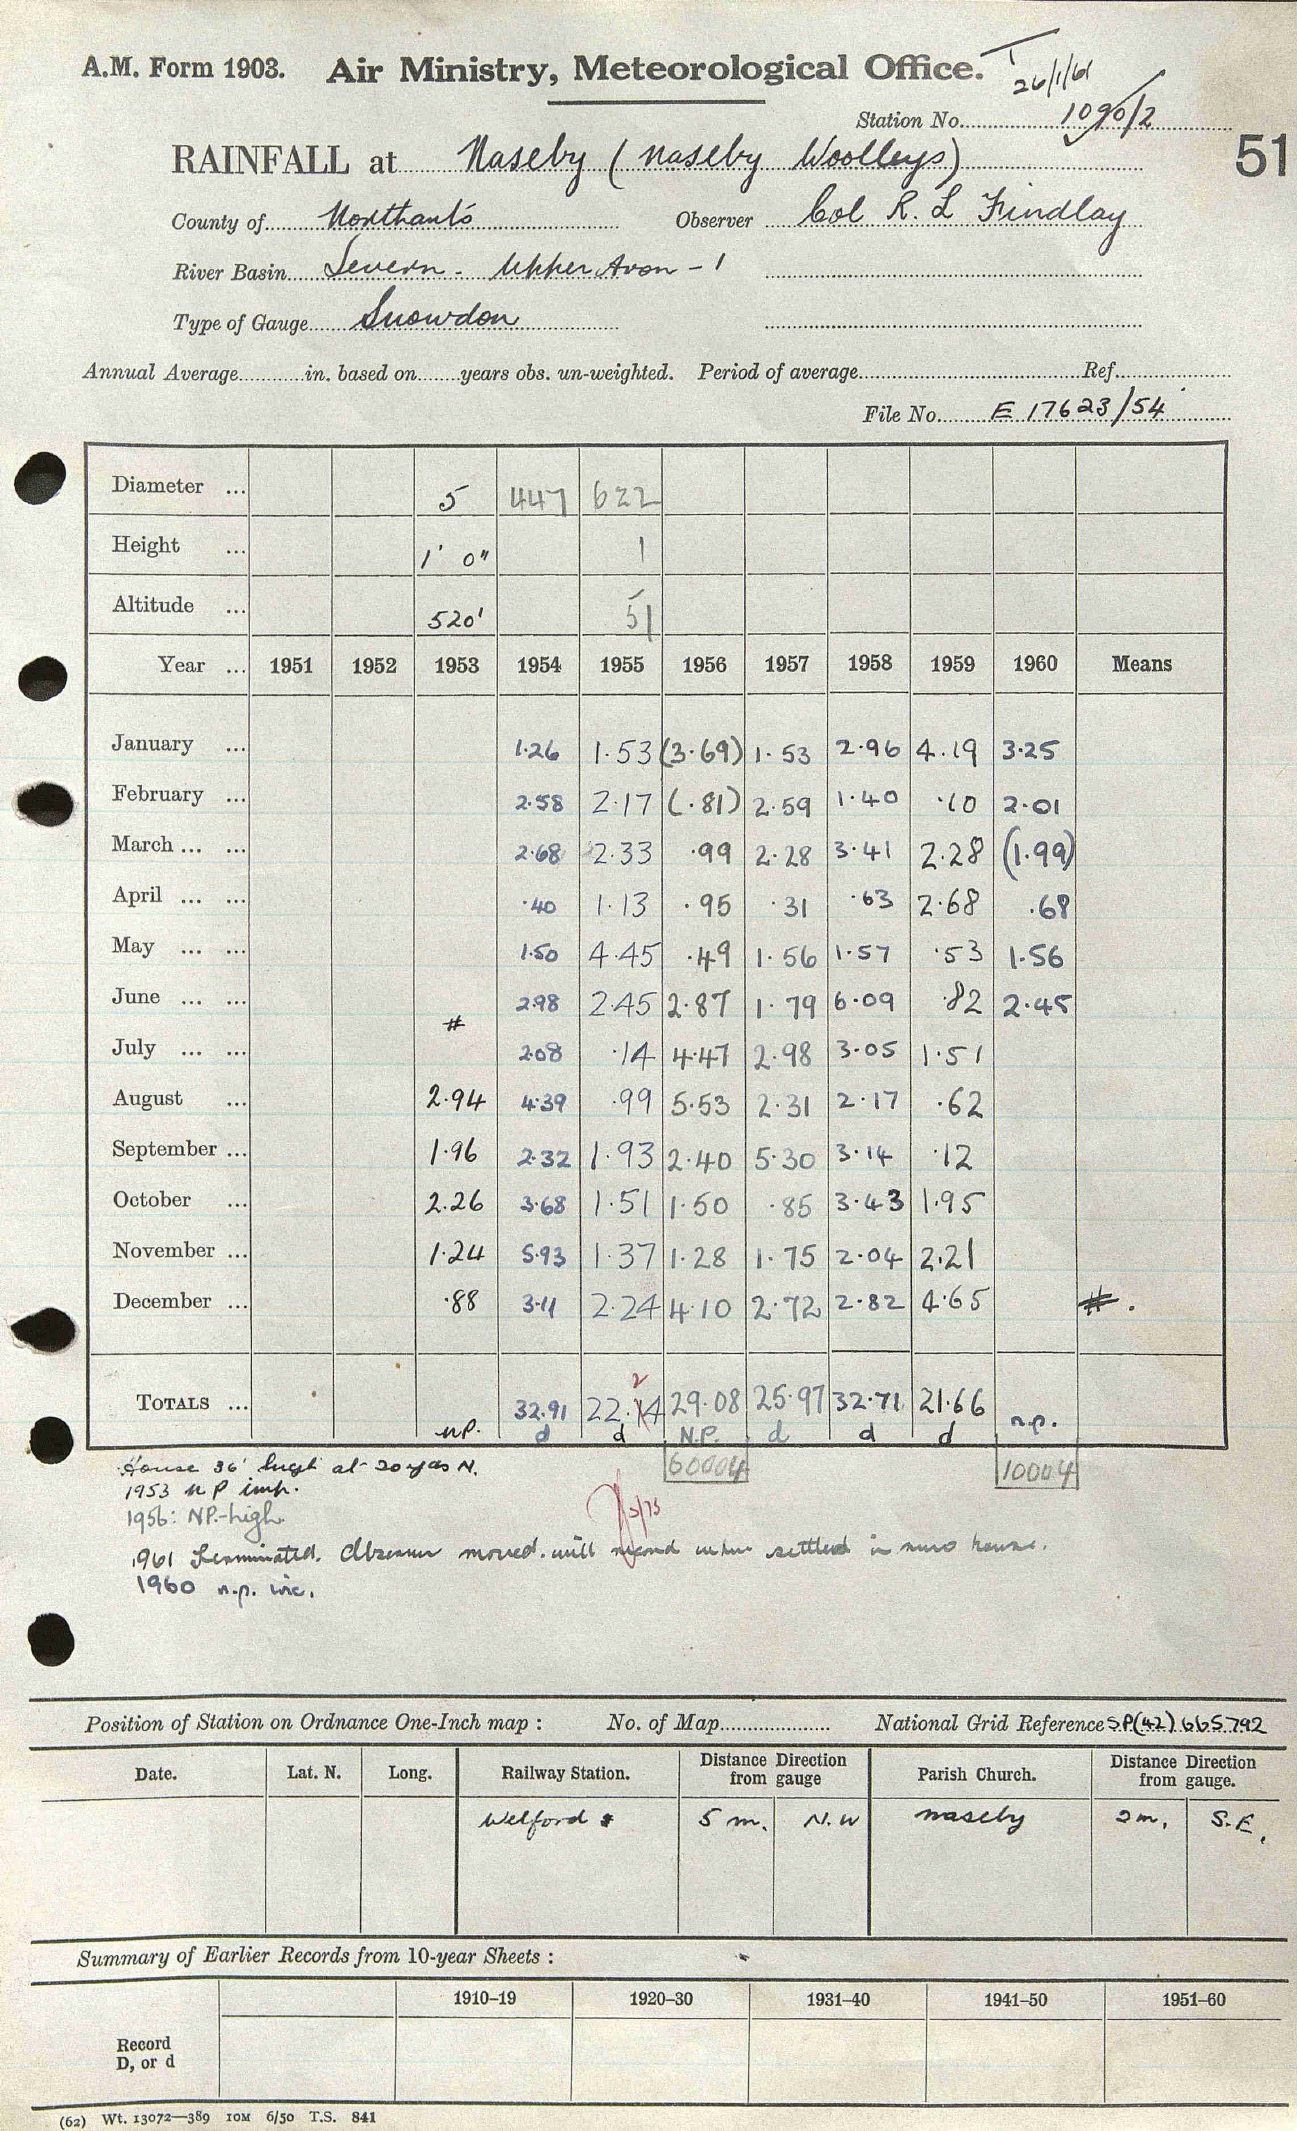 A.M. Form 1903. Air Ministry, Meteorological Office. 26/1/61
Station No. 1090/2
51
RAINFALL at Naseby (Naseby Woolleys)
County of Northants Observer Col R. L Findlay
River Basin Severn - Upper Avon - 1
Type of Gauge Snowdon
Annual Average in. based on years obs. un-weighted. Period of average Ref.
File No. E 17623/54
Diameter ... 5 447 622
Height ... 1' 0" 1
Altitude ... 520' 51
Year ... 1951 1952 1953 1954 1955 1956 1957 1958 1959 1960 Means
January ... 1.26 1.53 (3.69) 1.53 2.96 4.19 3.25
February ... 2.58 2.17 (.81) 2.59 1.40 .10 2.01
March ... ... 2.68 2.33 .99 2.28 3.41 2.28 (1.99)
April ... ... .40 1.13 .95 .31 .63 2.68 .68
May ... ... 1.50 4.45 .49 1.56 1.57 .53 1.56
June ... ... 2.98 2.45 2.87 1.79 6.09 .82 2.45
#
July ... ... 2.08 .14 4.47 2.98 3.05 1.51
August ... 2.94 4.39 .99 5.53 2.31 2.17 .62
September ... 1.96 2.32 1.93 2.40 5.30 3.14 .12
October ... 2.26 3.68 1.51 1.50 .85 3.43 1.95
November ... 1.24 5.93 1.37 1.28 1.75 2.04 2.21
December ... .88 3.11 2.24 4.10 2.72 2.82 4.65 #.
2
TOTALS ... 32.91 22.14 29.08 25.97 32.71 21.66 n.p.
n.p. d d N.P. d d d
60004 10004
House 36' high at 20 yds N.
1953 n P imp.
1956: NP.-high
5/73
1961 Terminated. Observer moved. will record when settled in new house.
1960 n.p. inc.
Position of Station on Ordnance One-Inch map : No. of Map National Grid Reference SP(42) 665792
Date. Lat. N. Long. Railway Station. Distance Direction from gauge Parish Church. Distance Direction from gauge.
Welford 5 m. N.W Naseby 2m. S.E.
Summary of Earlier Records from 10-year Sheets :
1910–19 1920–30 1931–40 1941–50 1951–60
Record
D, or d
(62) Wt. 13072—389 10M 6/50 T.S. 841